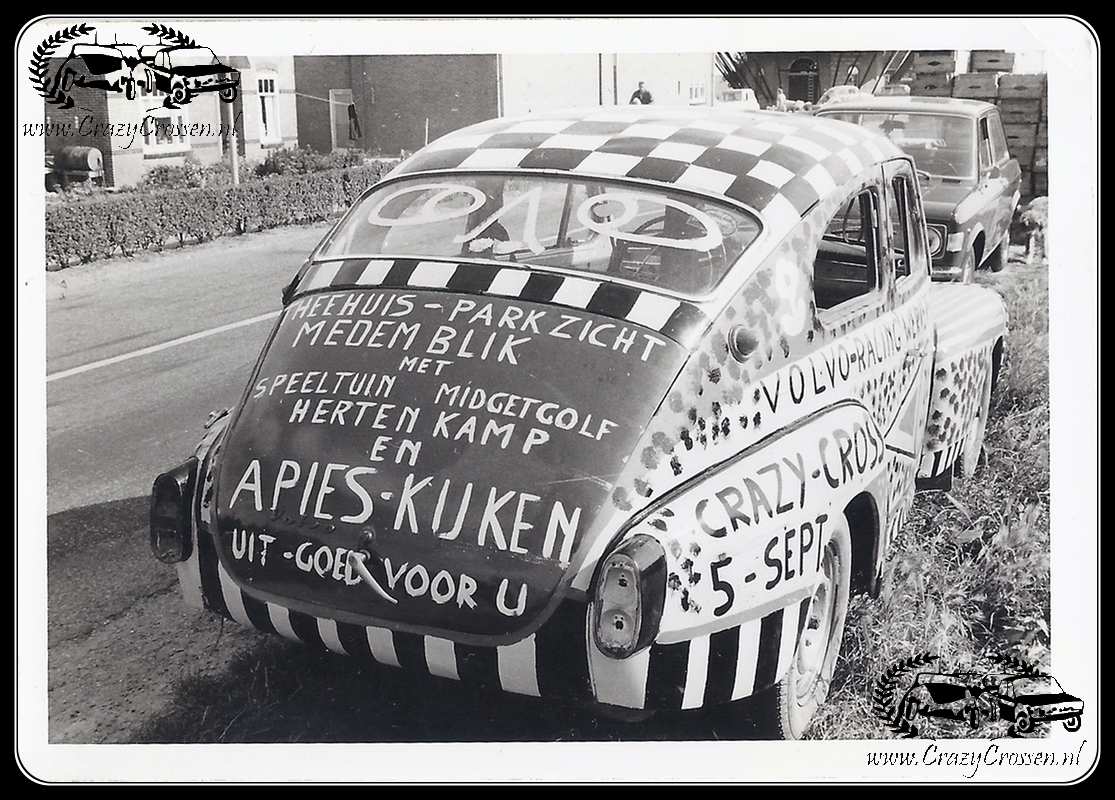 www.CrazyCrossen.nl
THEEHUIS-PARKZICHT
MEDEMBLIK
MET
SPEELTUIN MIDGETGOLF
HERTEN KAMP
EN
APIES-KIJKEN
UIT-GOED VOOR U
VOLVO-RACING
CRAZY-CROSS
5-SEPT
www.CrazyCrossen.nl